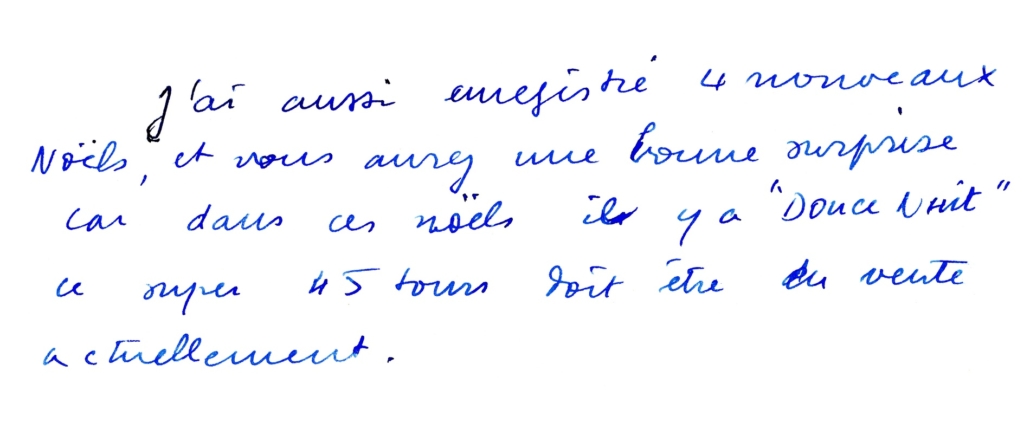 J'ai aussi enregistré 4 nouveaux
Noëls, et vous aurez une bonne surprise
car dans ces noëls il y a "Douce Nuit"
ce super 45 tours doit être en vente
actuellement.